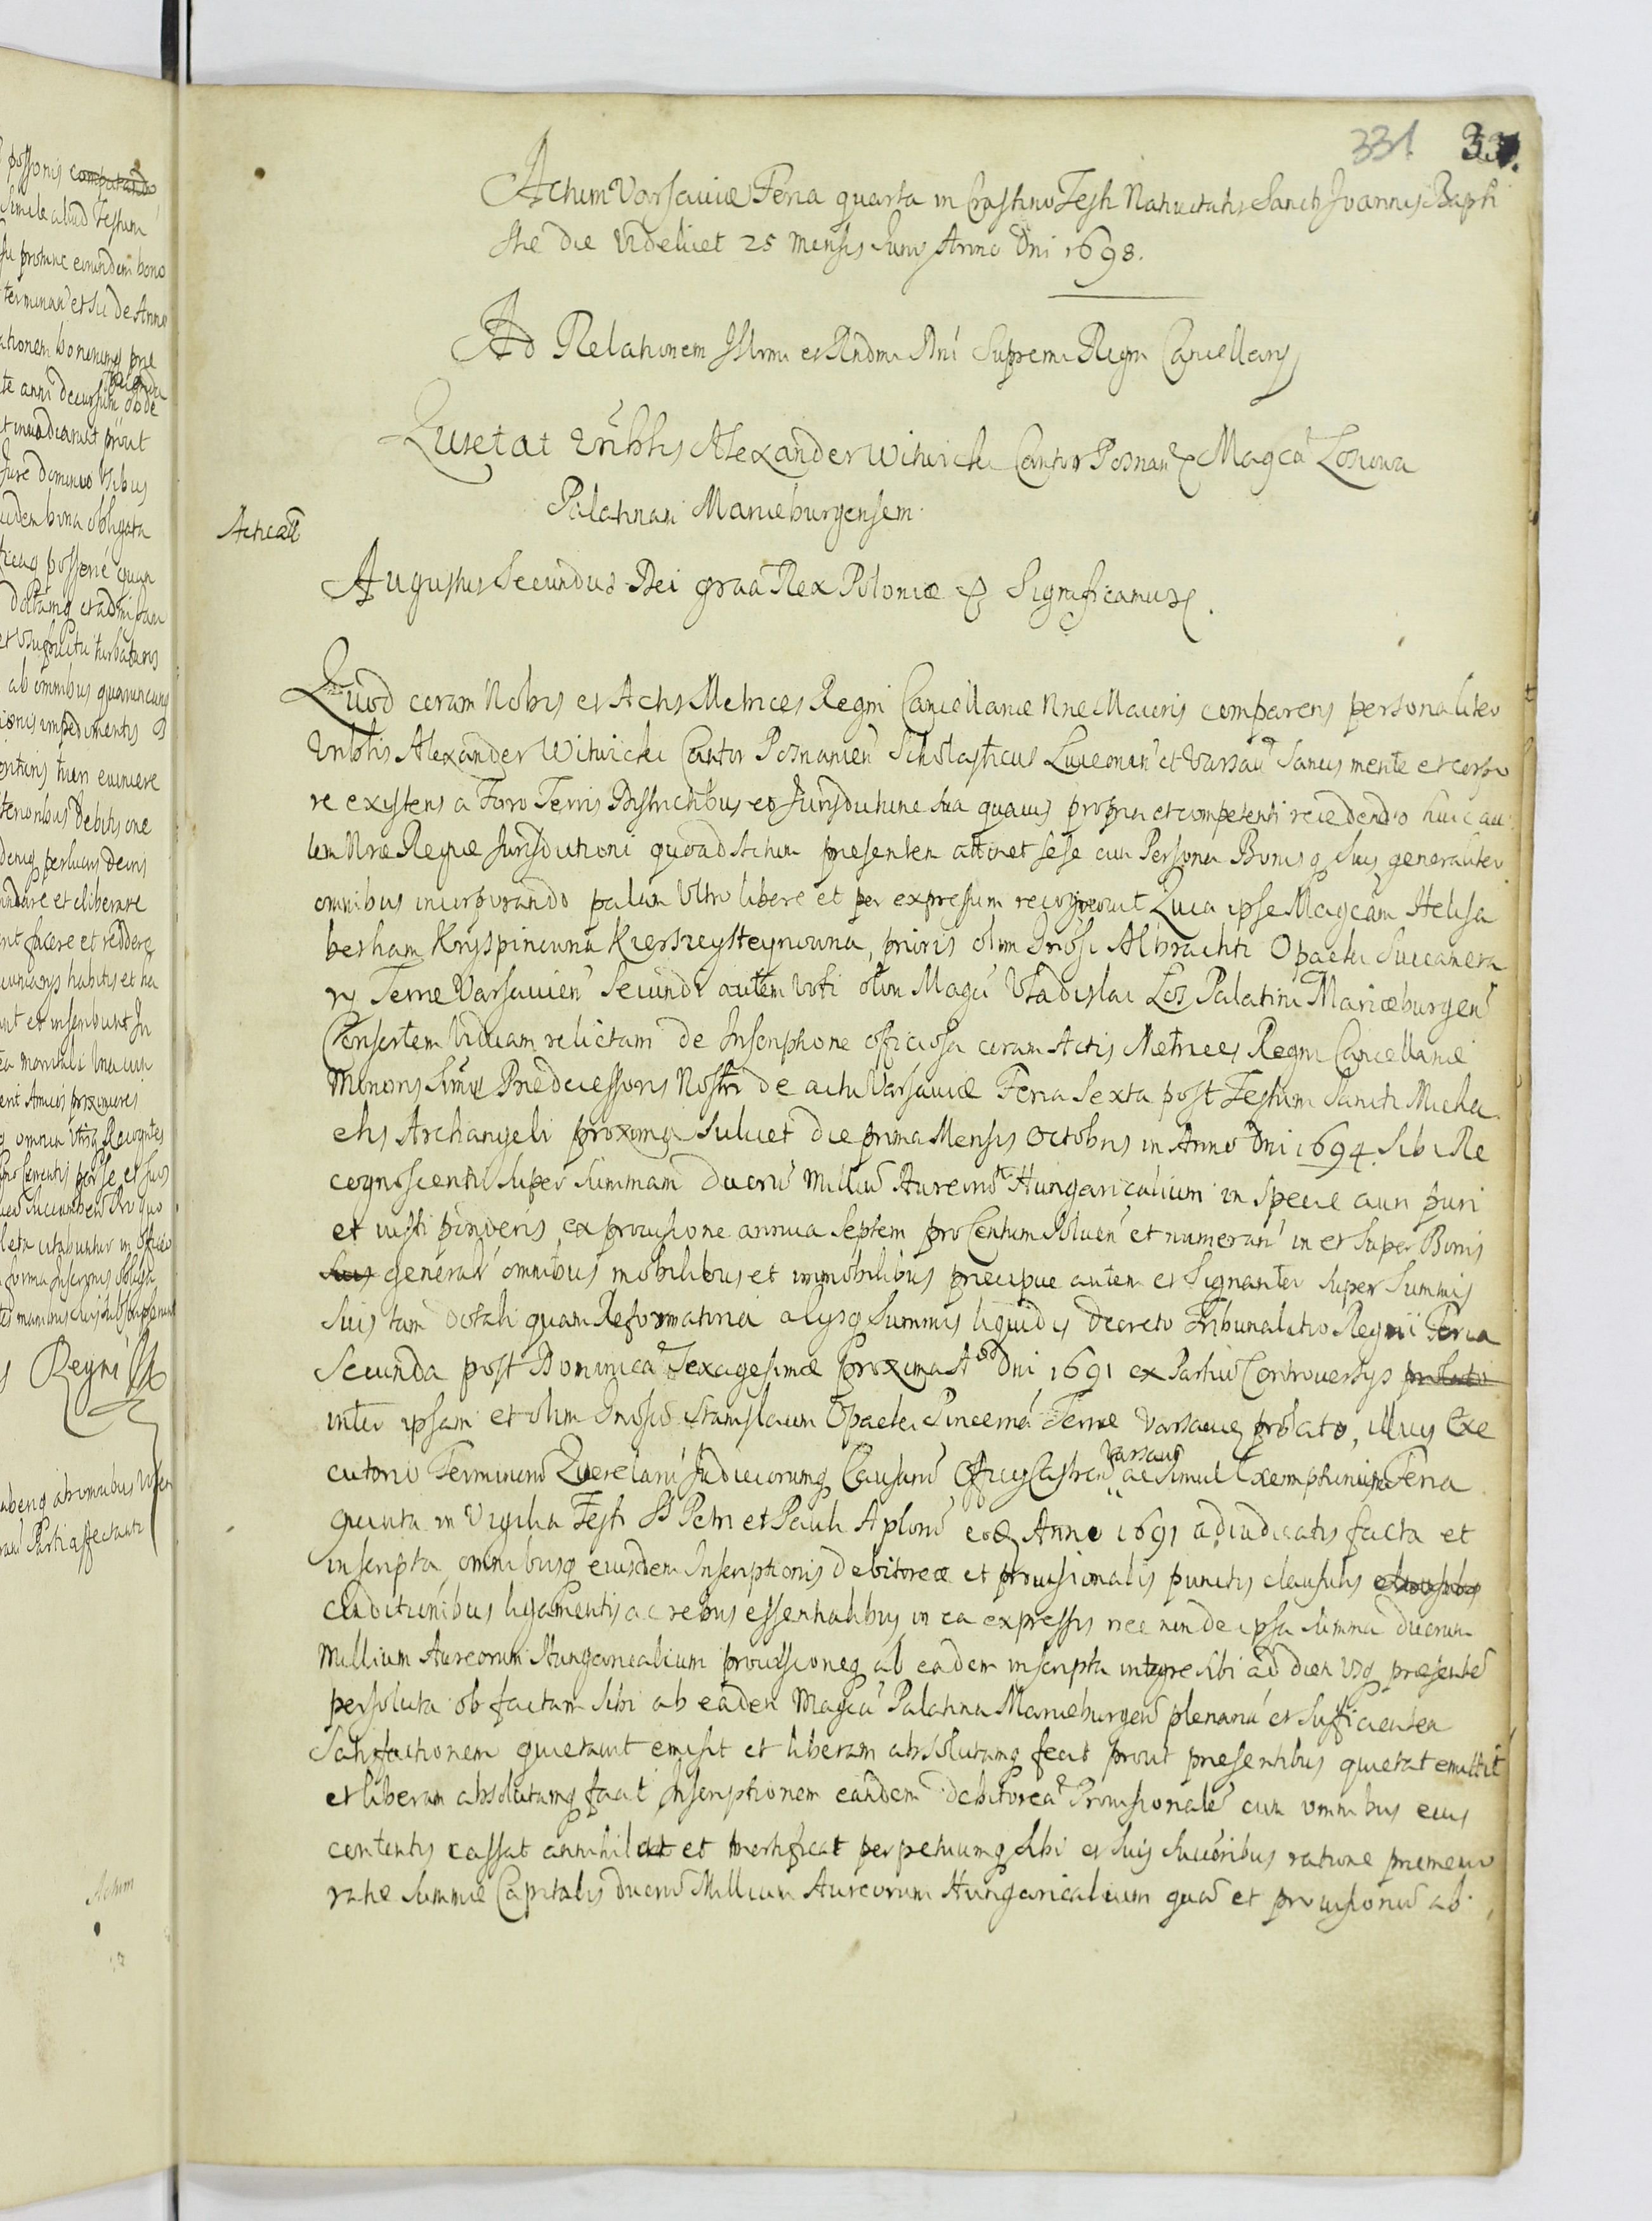 331. 331.
Actum Varsauiæ Feria quarta in Crastino Festi Natiuitatis Sancti Joannis Bapti
stæ die Videlicet 25 Mensis Junij Anno Dni 1698.
Ad Relationem Illmi et Rndmi Dni Supremi Regni Cancellarij
Quietat Vrblis Alexander Witwicki Cantor Posnan &c Magcã Łosiowa
Palatinam Marieburgensem
Acticatũ
Augustus Secundus Dei graa Rex Poloniæ &c Significamus &c.
Quod coram Nobis et Actis Metrices Regni Cancellariæ Nræ Maioris comparens personaliter
Vrblis Alexander Witwicki Cantor Posnanien Scholasticus Luceorien et Varsau Sanus mente et corpo
re existens a Foro Terris Districtibus et Jurisdictione sua quauis propria et competenti recedendo huic au
tem Nræ Regiæ Jurisdictioni quoad Actum præsentem attinet sese cum Persona Bonisq suis generaliter
omnibus incorporando palam Vltro libere et per expressum recognouit Quia ipse Magcam Helisa
betham Kryspinowna Kierszeysteynowna, prioris olim Gnosi Albrachti Opacki Succamera
rij Terræ Varsauien Secundi autem Voti olim Magci Vladislai Łoś Palatini Mariæburgen
Consortem Viduam relictam de Inscriptione officiosa coram Actis Metrices Regni Cancellariæ
Minoris Srmi Prædecessoris Nostri de actu Varsauiæ Feria Sexta post Festum Sancti Micha
elis Archangeli proxima Scilicet die prima Mensis Octobris in Anno Dni 1694. Sibi Re
cognoscenti super Summam duorũ Milliũ Aureorũ Hungaricalium in specie auri puri
et iusti ponderis, ex prouisione annua Septem pro Centum soluen et numeran in et super Bonis
suis general omnibus mobilibus et immobilibus præcipue autem et Signanter super Summis
suis tam dotali quam Reformatoria alijsq Summis liquidis Decreto Tribunalitio Regni Feria
Secunda post Dominicã Sexagesimæ proxima A Dni 1691 ex Partiũ Controuersijs prolato
inter ipsam et olim Gnosũ Stanislaum Opacki Pincernã Terræ Varsauię prolato, illius Exe
cutorio Terminorũ Querelarũ Judiciorumq Causarũ Officij Castren Varsauien ac simul Exemptionis Feria
Quinta in Vigilia Festi SS Petri et Pauli Aplorũ eodẽ Anno 1691 adiudicatis facta et
inscripta, omnibusq eiusdem Inscriptionis debitoreæ et prouisionalis punctis clausulis clausulis
conditionibus ligamentis ac rebus essentialibus in ea expressis nec non de ipsa Summa duorum
Millium Aureorum Hungaricalium prouisioneq ab eadem inscripta integre sibi ad diem Vsq præsentẽ
persoluta ob factam sibi ab eadem Magcã Palatina Marieburgen plenariã et sufficientem
Satisfactionem quietauit emisit et liberam absolutamq fecit prout præsentibus quietat emittit
et liberam absolutamq facit Inscriptionem eandem debitoreã Prouisionalẽ cum omnibus eius
contentis cassat annihilat et mortificat perpetuumq sibi et suis Succoribus ratione præmemo
ratæ Summæ Capitalis duorũ Millium Aureorum Hungaricalium quã et prouisionũ ab